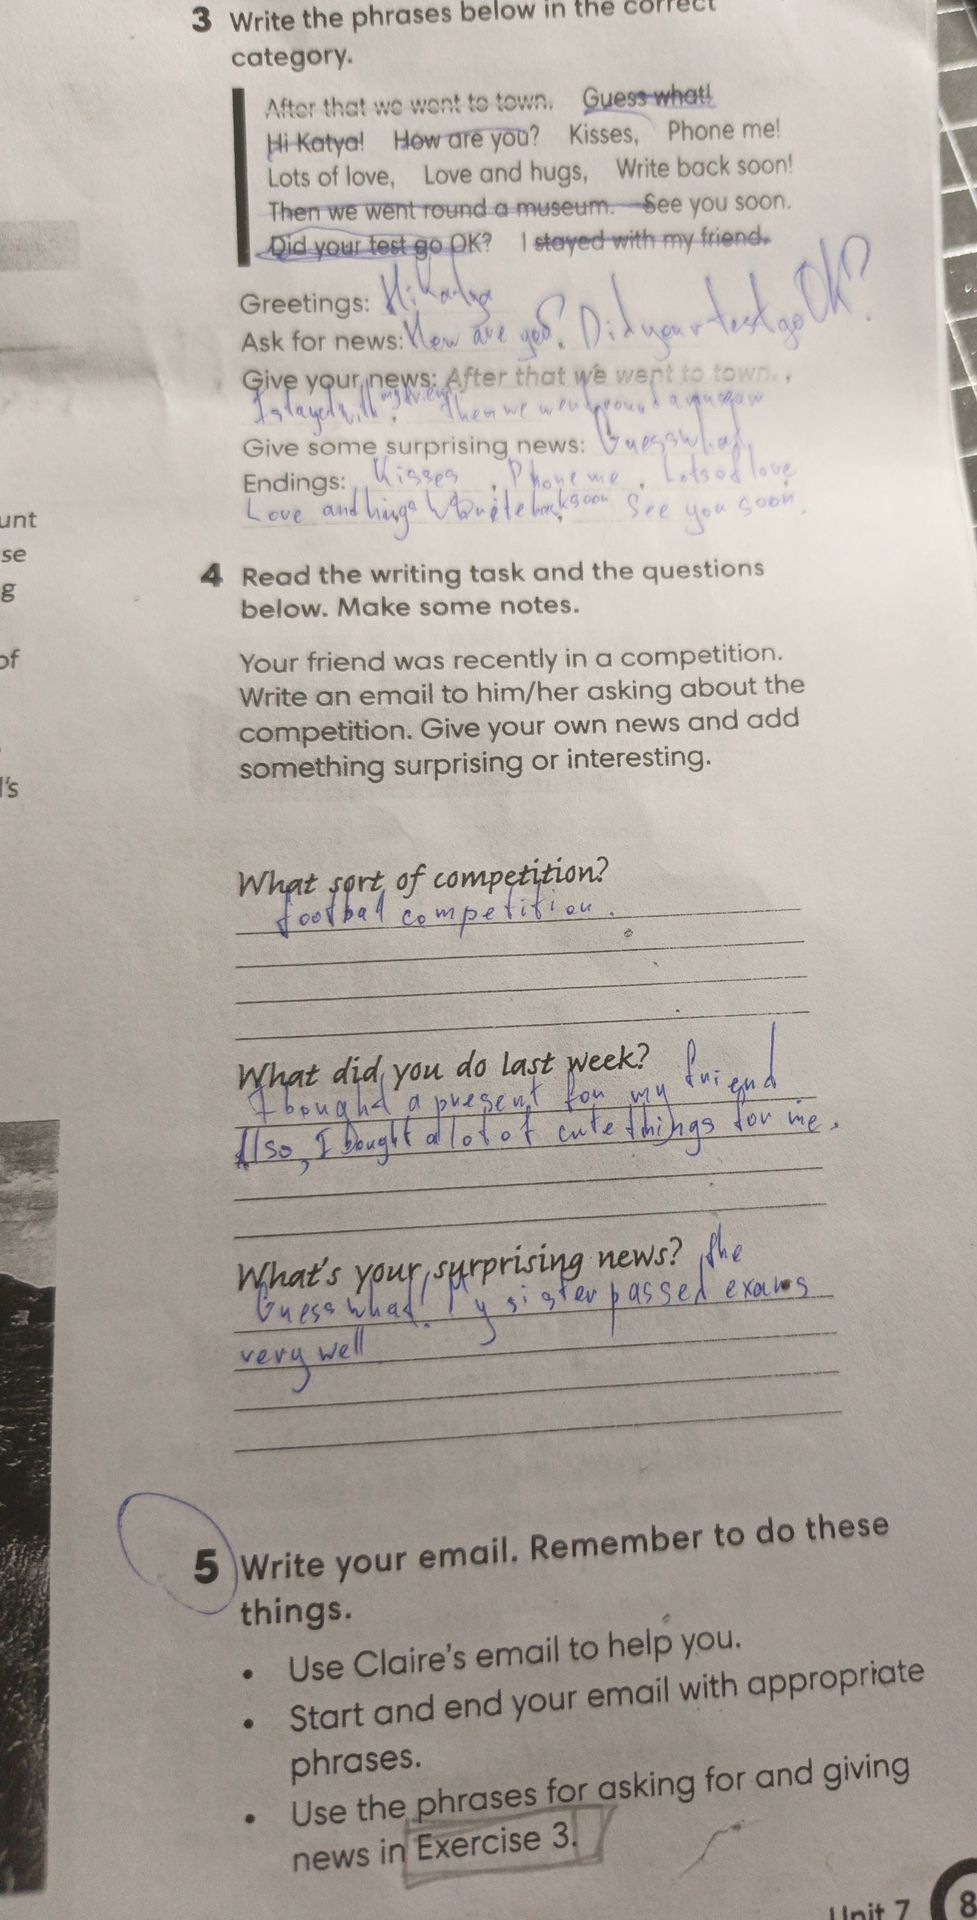 3 Write the phrases below in the correct
category.
After that we went to town. Guess what!
Hi Katya! How are you? Kisses, Phone me!
Lots of love, Love and hugs, Write back soon!
Then we went round a museum. See you soon.
Did your test go OK? I stayed with my friend.
Greetings: Hi Katya
Ask for news: How are you? Did your test go OK?
Give your news: After that we went to town.,
I stayed with my friend, Then we went round a museum
Give some surprising news: Guess what,
Endings: Kisses, Phone me, Lots of love
Love and hugs Write back soon See you soon.
4 Read the writing task and the questions
below. Make some notes.
Your friend was recently in a competition.
Write an email to him/her asking about the
competition. Give your own news and add
something surprising or interesting.
What sort of competition?
footbal competition.
What did you do last week?
I bought a present for my friend
Also, I bought a lot of cute things for me.
What's your surprising news?
Guess what! My sister passed the exams
very well
5 Write your email. Remember to do these
things.
• Use Claire's email to help you.
• Start and end your email with appropriate
phrases.
• Use the phrases for asking for and giving
news in Exercise 3.
Unit 7 8
unt
se
g
of
l's